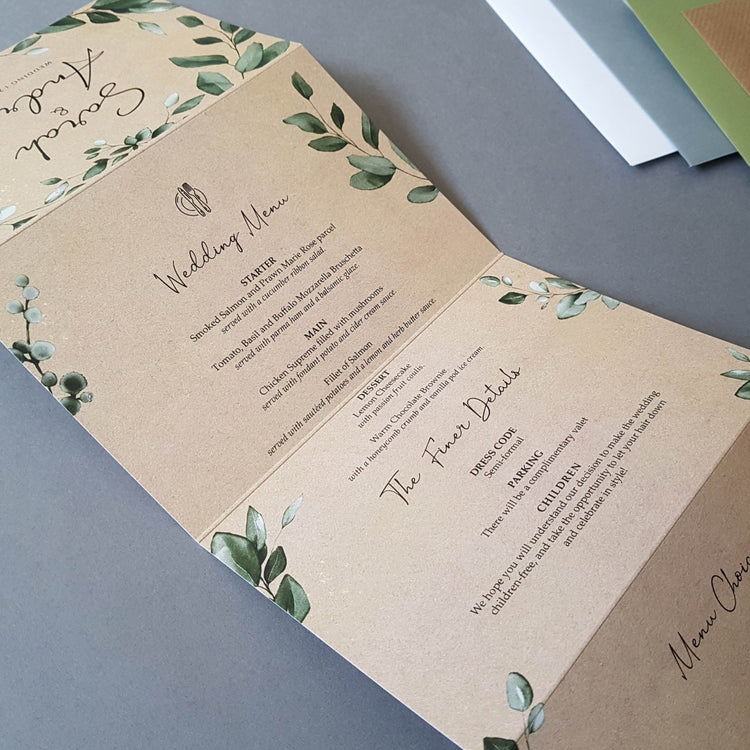 Sarah
&
Wedding Menu
STARTER
Smoked Salmon and Prawn Marie Rose parcel
served with a cucumber ribbon salad.
Tomato, Basil and Buffalo Mozzarella Bruschetta
served with parma ham and a balsamic glaze.
MAIN
Chicken Supreme filled with mushrooms
served with fondant potato and cider cream sauce.
Fillet of Salmon
served with sautéed potatoes and a lemon and herb butter sauce.
DESSERT
Lemon Cheesecake
with passion fruit coulis.
Warm Chocolate Brownie
with a honeycomb crumb and vanilla pod ice cream.
The Finer Details
DRESS CODE
Semi-formal
PARKING
There will be a complimentary valet
CHILDREN
We hope you will understand our decision to make the wedding
children-free, and take the opportunity to let your hair down
and celebrate in style!
Menu